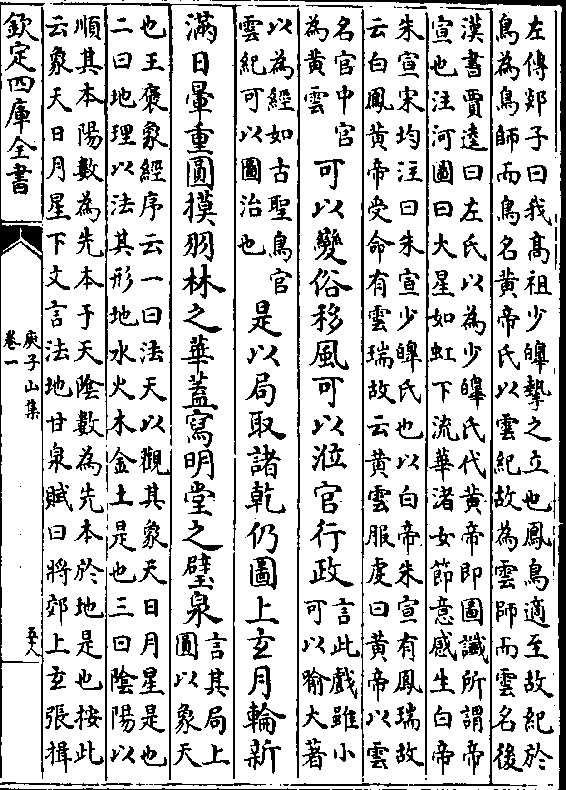 左傳郯子曰我髙祖少皥摯之立也鳳鳥適至故紀於
鳥為鳥師而鳥名黄帝氏以雲紀故為雲師而雲名後
漢書賈逵曰左氏以為少皥氏代黄帝即圖讖所謂帝
宣也注河圖曰大星如虹下流華渚女節意感生白帝
朱宣宋均注曰朱宣少皥氏也以白帝朱宣有鳳瑞故
云白鳳黄帝受命有雲瑞故云黄雲服虔曰黄帝以雲
名官中官
為黄雲
可以變俗移風可以涖官行政
言此戲雖小
可以喻大著
以為經如古聖鳥官
雲紀可以圖治也
是以局取諸乾仍圖上玄月輪新
滿日暈重圓摸羽林之華蓋寫明堂之璧泉
言其局上
圓以象天
也王褒象經序云一曰法天以觀其象天日月星是也
二曰地理以法其形地水火木金土是也三曰陰陽以
順其本陽數為先本于天陰數為先本於地是也按此
云象天日月星下文言法地甘泉賦曰將郊上玄張揖
欽定四庫全書
庾子山集
卷一
五八